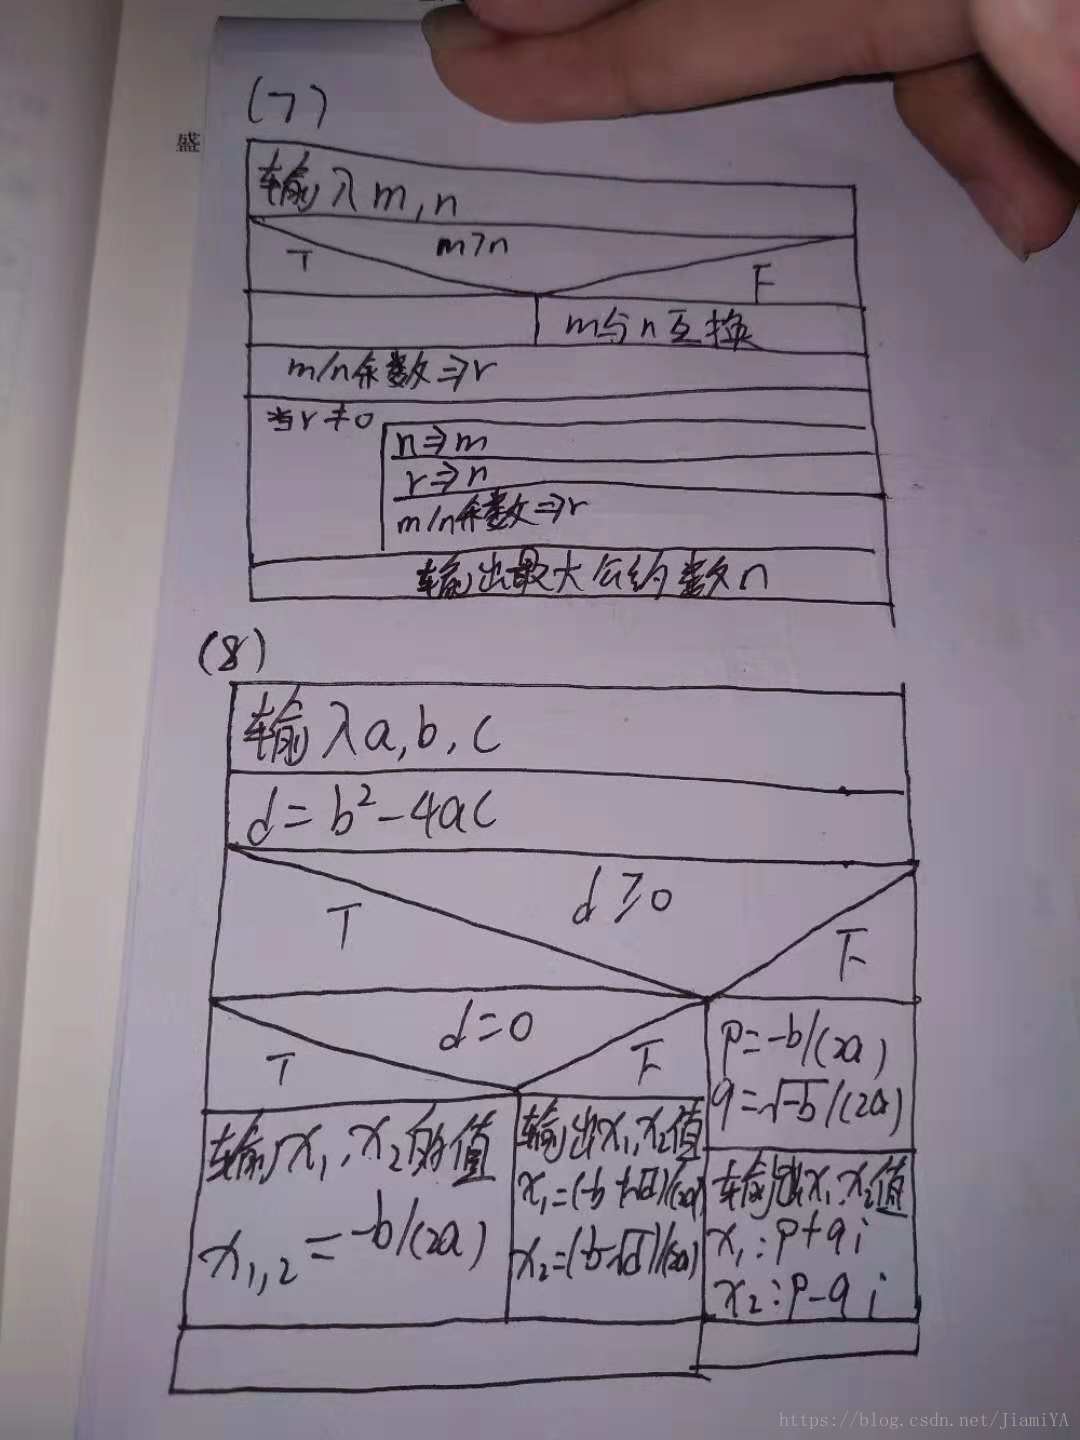 盛
(7)
输入m,n
m>n
T
F
m与n互换
m/n余数⇒r
当r≠0
n⇒m
r⇒n
m/n余数⇒r
输出最大公约数n
(8)
输入a,b,c
d=b²-4ac
d≥0
T
F
d=0
T
F
p=-b/(2a)
q=√-b/(2a)
输入x₁,x₂的值
x₁,₂=-b/(2a)
输出x₁,x₂值
x₁=(-b+√d)/(2a)
x₂=(-b-√d)/(2a)
输出x₁,x₂值
x₁:p+qi
x₂:p-qi
https://blog.csdn.net/JiamiYA